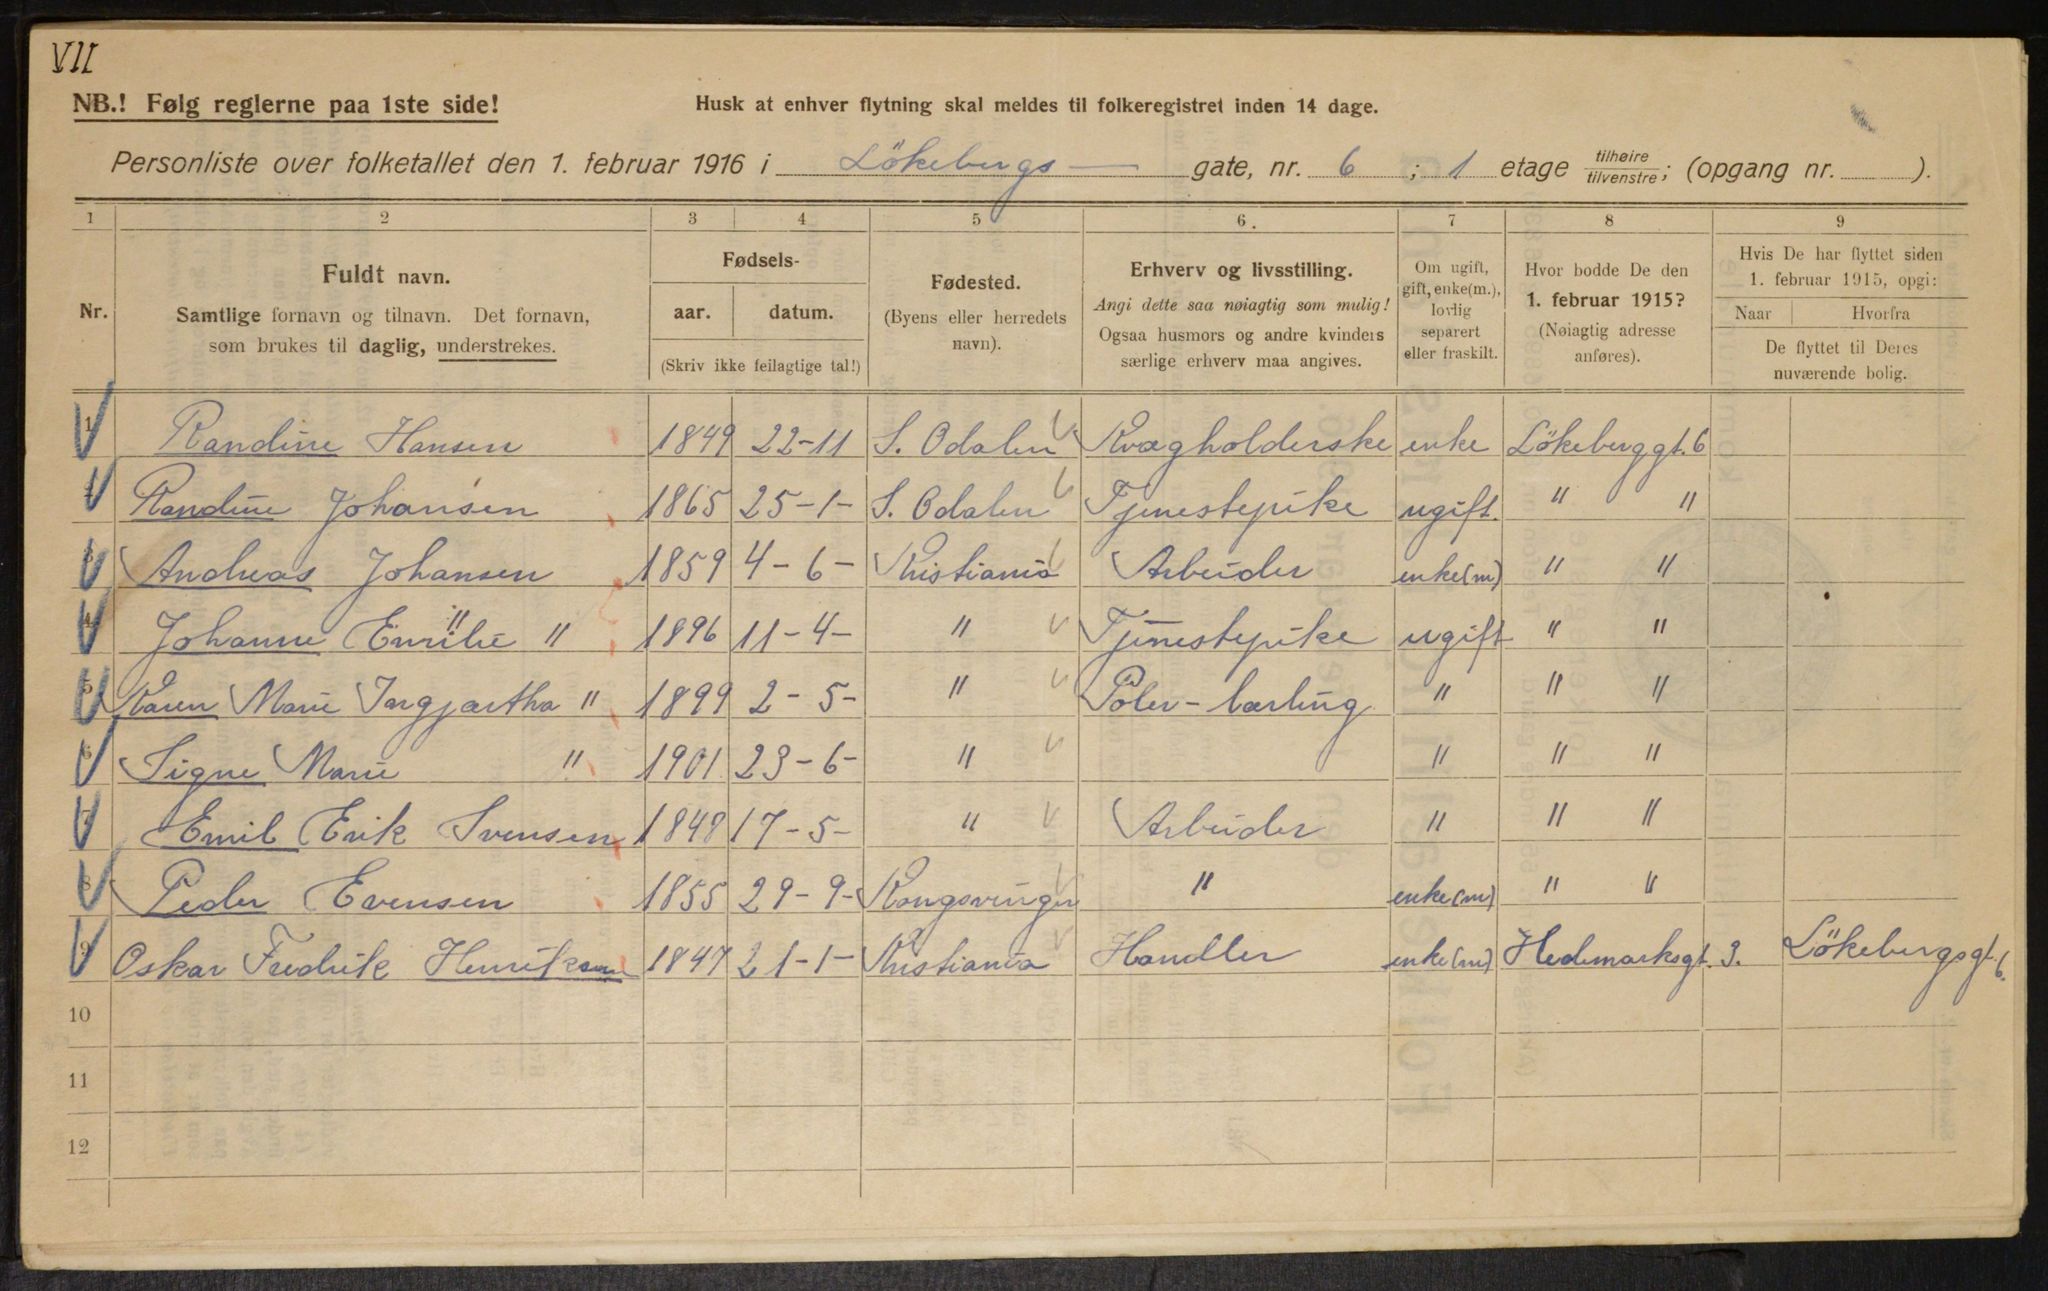 VII
NB.! Følg reglerne paa 1ste side!
Husk at enhver flytning skal meldes til folkeregistret inden 14 dage.
Personliste over folketallet den 1. februar 1916 i Lökebergs— gate, nr. 6 ; 1 etage tilhøire/tilvenstre; (opgang nr. ).
1 2 3 4 5 6. 7 8 9
Nr.
Fuldt navn.
Samtlige fornavn og tilnavn. Det fornavn,
som brukes til daglig, understrekes.
Fødsels-
aar. datum.
(Skriv ikke feilagtige tal!)
Fødested.
(Byens eller herredets
navn).
Erhverv og livsstilling.
Angi dette saa nøiagtig som mulig!
Ogsaa husmors og andre kvinders
særlige erhverv maa angives.
Om ugift,
gift, enke(m.),
lovlig
separert
eller fraskilt.
Hvor bodde De den
1. februar 1915?
(Nøiagtig adresse
anføres).
Hvis De har flyttet siden
1. februar 1915, opgi:
Naar Hvorfra
De flyttet til Deres
nuværende bolig.
1 Randine Hansen 1849 22-11 S. Odalen Kvægholderske enke Lökeberggt. 6
2 Randine Johansen 1865 25-1- S. Odalen Tjenestepike ugift. " "
3 Andreas Johansen 1859 4-6- Kristiania Arbeider enke(m) " "
4 Johanne Emilie " 1896 11-4- " Tjenestepike ugift " "
5 Karen Marie Ingjartha " 1899 2-5- " Poler-lærling " " "
6 Signe Marie " 1901 23-6- " " " "
7 Emil Erik Svensen 1848 17-5- " Arbeider " " "
8 Peder Evensen 1855 29-9- Kongsvinger " enke(m) " "
9 Oskar Fredrik Henriksen 1847 21-1- Kristiania Handler enke(m) Hedemarksgt. 3. Lökebergsgt. 6.
10
11
12